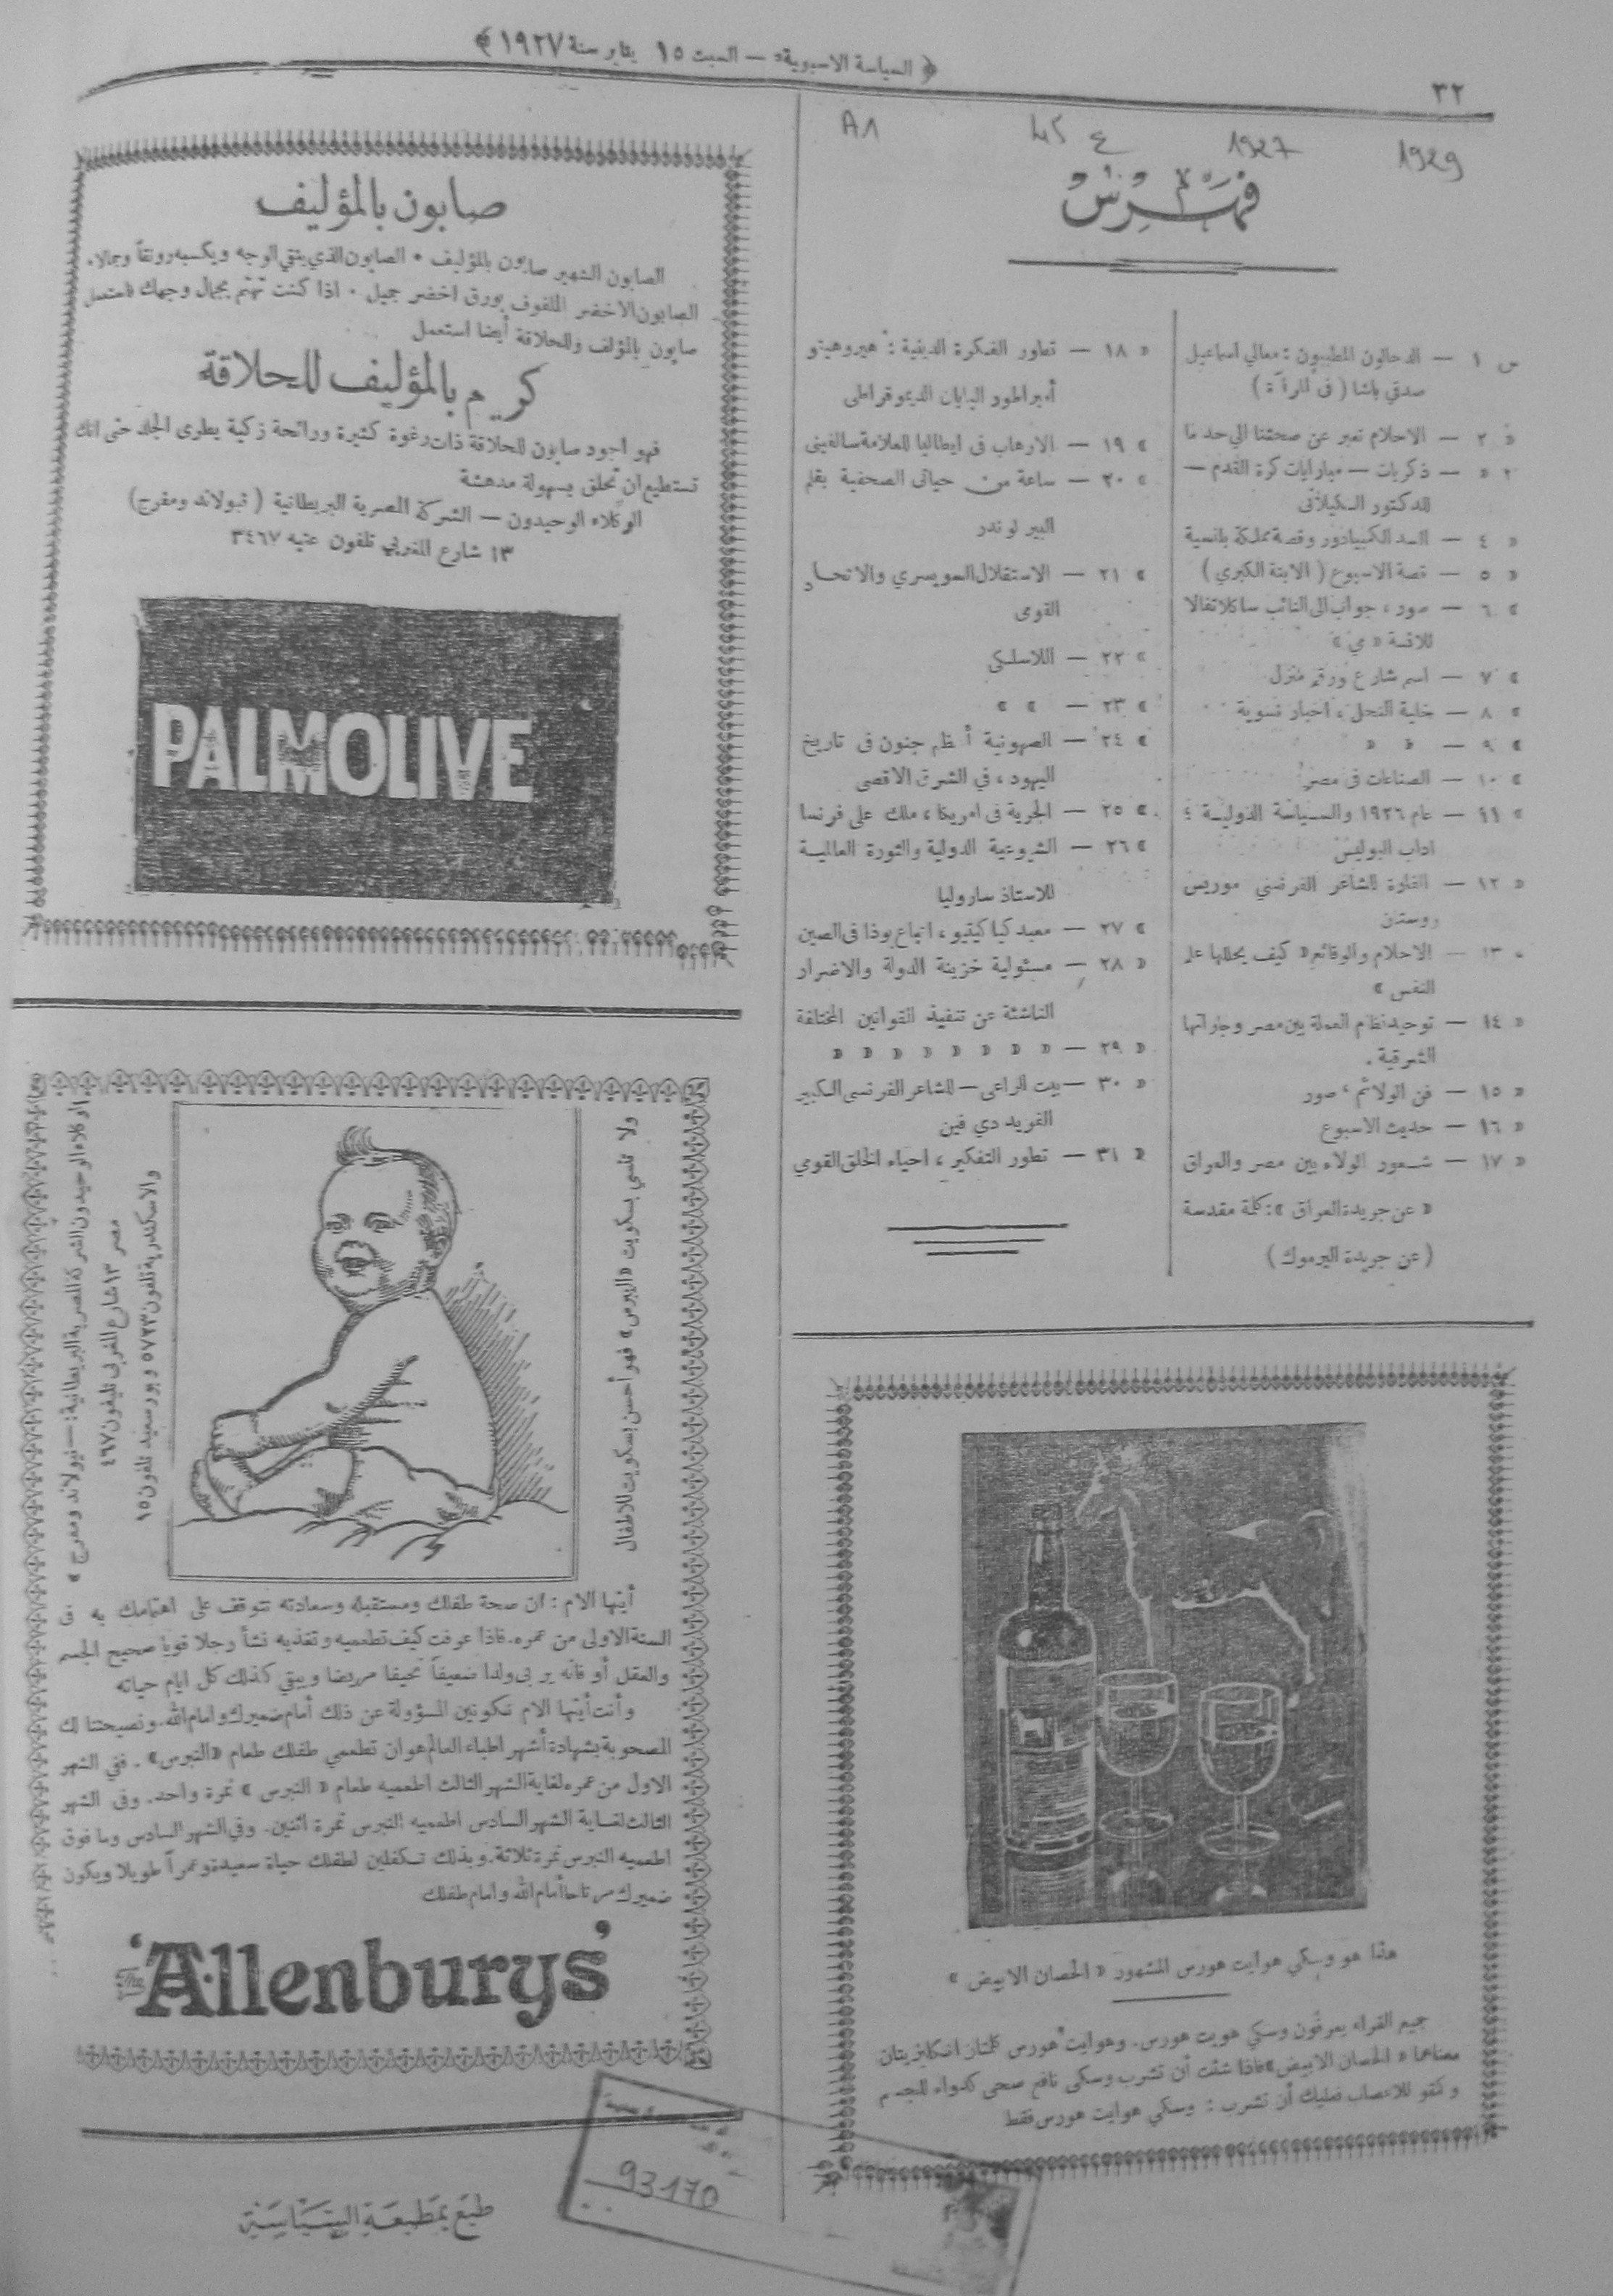 ﴿ السياسة الاسبوعية — السبت ١٥ يناير سنة ١٩٢٧ ﴾
٣٢
A1 45 ع 1927 1929
فهرس
ص ١ — الدجالون المطببون : معالي اسماعيل
صدقي باشا ( في المرآة )
« ٢ — الاحلام تعبر عن صحتنا الى حد ما
« ٣ — ذكريات — مباريات كرة القدم —
للدكتور الكيلانى
« ٤ — السد الكمبيادور وقصة مملكة بلنسية
« ٥ — قصة الاسبوع ( الابنة الكبرى )
« ٦ — صور ، جواب الى النائب ساكلاتفالا
للانسة « مي »
« ٧ — اسم شارع ورقم منزل
« ٨ — خلية النحل ، اخبار نسوية
« ٩ — « «
« ١٠ — الصناعات فى مصر
« ١١ — عام ١٩٢٦ والسياسة الدولية ؛
اداب البوليس
« ١٢ — الفلوة للشاعر الفرنسي موريس
روستان
« ١٣ — الاحلام والوقائع « كيف يحللها علم
النفس »
« ١٤ — توحيد نظام العملة بين مصر وجاراتها
الشرقية .
« ١٥ — فن الولائم ، صور
« ١٦ — حديث الاسبوع
« ١٧ — شعور الولاء بين مصر والعراق
« عن جريدة العراق » : كلمة مقدسة
( عن جريدة اليرموك )
« ١٨ — تطور الفكرة الدينية : هيروهيتو
أمبراطور اليابان الديموقراطى
« ١٩ — الارهاب فى ايطاليا للعلامة سالفينى
« ٢٠ — ساعة من حياتى الصحفية بقلم
البير لوندر
« ٢١ — الاستقلال السويسري والاتحاد
القومى
« ٢٢ — اللاسلكى
« ٢٣ — « «
« ٢٤ — الصهيونية أعظم جنون فى تاريخ
اليهود ، في الشرق الاقصى
« ٢٥ — الحرية فى امريكا ، ملك على فرنسا
« ٢٦ — الشيوعية الدولية والثورة العالمية
للاستاذ ساروليا
« ٢٧ — معبد كياكيتيو ، اتباع بوذا فى الصين
« ٢٨ — مسئولية خزينة الدولة والاضرار
الناشئة عن تنفيذ القوانين المختلفة
« ٢٩ — « « « « « « « «
« ٣٠ — بيت الراعى — للشاعر الفرنسى الكبير
الفريد دي فين
« ٣١ — تطور التفكير ، احياء الخلق القومي
هذا هو وسكي هوايت هورس المشهور « الحصان الابيض »
جميع القراء يعرفون وسكي هويت هورس . وهوايت هورس كلمتان انكليزيتان
معناهما « الحصان الابيض » فاذا شئت أن تشرب وسكى نافع صحى كدواء للجسم
و كمقو للاعصاب فعليك أن تشرب : وسكي هوايت هورس فقط
صابون بالمؤليف
الصابون الشهير صابون بالمؤليف • الصابون الذي ينقي الوجه ويكسبه رونقاً وجمالا .
الصابون الاخضر الملفوف بورق اخضر جميل . اذا كنت تهتم بجمال وجهك فاستعمل
صابون بالمؤلف وللحلاقة أيضا استعمل
كريم بالمؤليف للحلاقة
فهو أجود صابون للحلاقة ذات رغوة كثيرة ورائحة زكية يطرى الجلد حتى انك
تستطيع ان تحلق بسهولة مدهشة
الوكلاء الوحيدون — الشركة المصرية البريطانية ( نيولاند ومفرج )
١٣ شارع المغربي تلفون عتبه ٣٤٦٧
PALMOLIVE
ولا تنسي بسكويت « النبرس » فهو أحسن بسكويت للاطفال
الوكلاء الوحيدون الشركة المصرية البريطانية : — نيولاند ومفرج »
مصر ١٣ شارع المغربي تليفون ٤٦٧
والاسكندرية تلفون ٥٧٢٣ وبور سعيد تلفون ١٥
أيتها الام : ان صحة طفلك ومستقبله وسعادته تتوقف على اهتمامك به فى
السنة الاولى من عمره . فاذا عرفت كيف تطعميه وتغذيه نشأ رجلا قويا صحيح الجسم
والعقل أو فانه يربى ولدا ضعيفاً نحيفا مريضا ويبقي كذلك كل ايام حياته
وأنت أيتها الام تكونين المسؤولة عن ذلك أمام ضميرك وامام الله . ونصيحتنا لك
المصحوبة بشهادة أشهر اطباء العالم هو ان تطعمي طفلك طعام « النبرس » . ففي الشهر
الاول من عمره لغاية الشهر الثالث اطعميه طعام « النبرس » نمرة واحد . وفى الشهر
الثالث لغاية الشهر السادس اطعميه النبرس نمرة اثنين . وفي الشهر السادس وما فوق
اطعميه النبرس نمرة ثلاثة . وبذلك تكفلين لطفلك حياة سعيدة وعمراً طويلا ويكون
ضميرك مرتاحا أمام الله وامام طفلك
The 'Allenburys'
93170
طبع بمطبعة السياسة